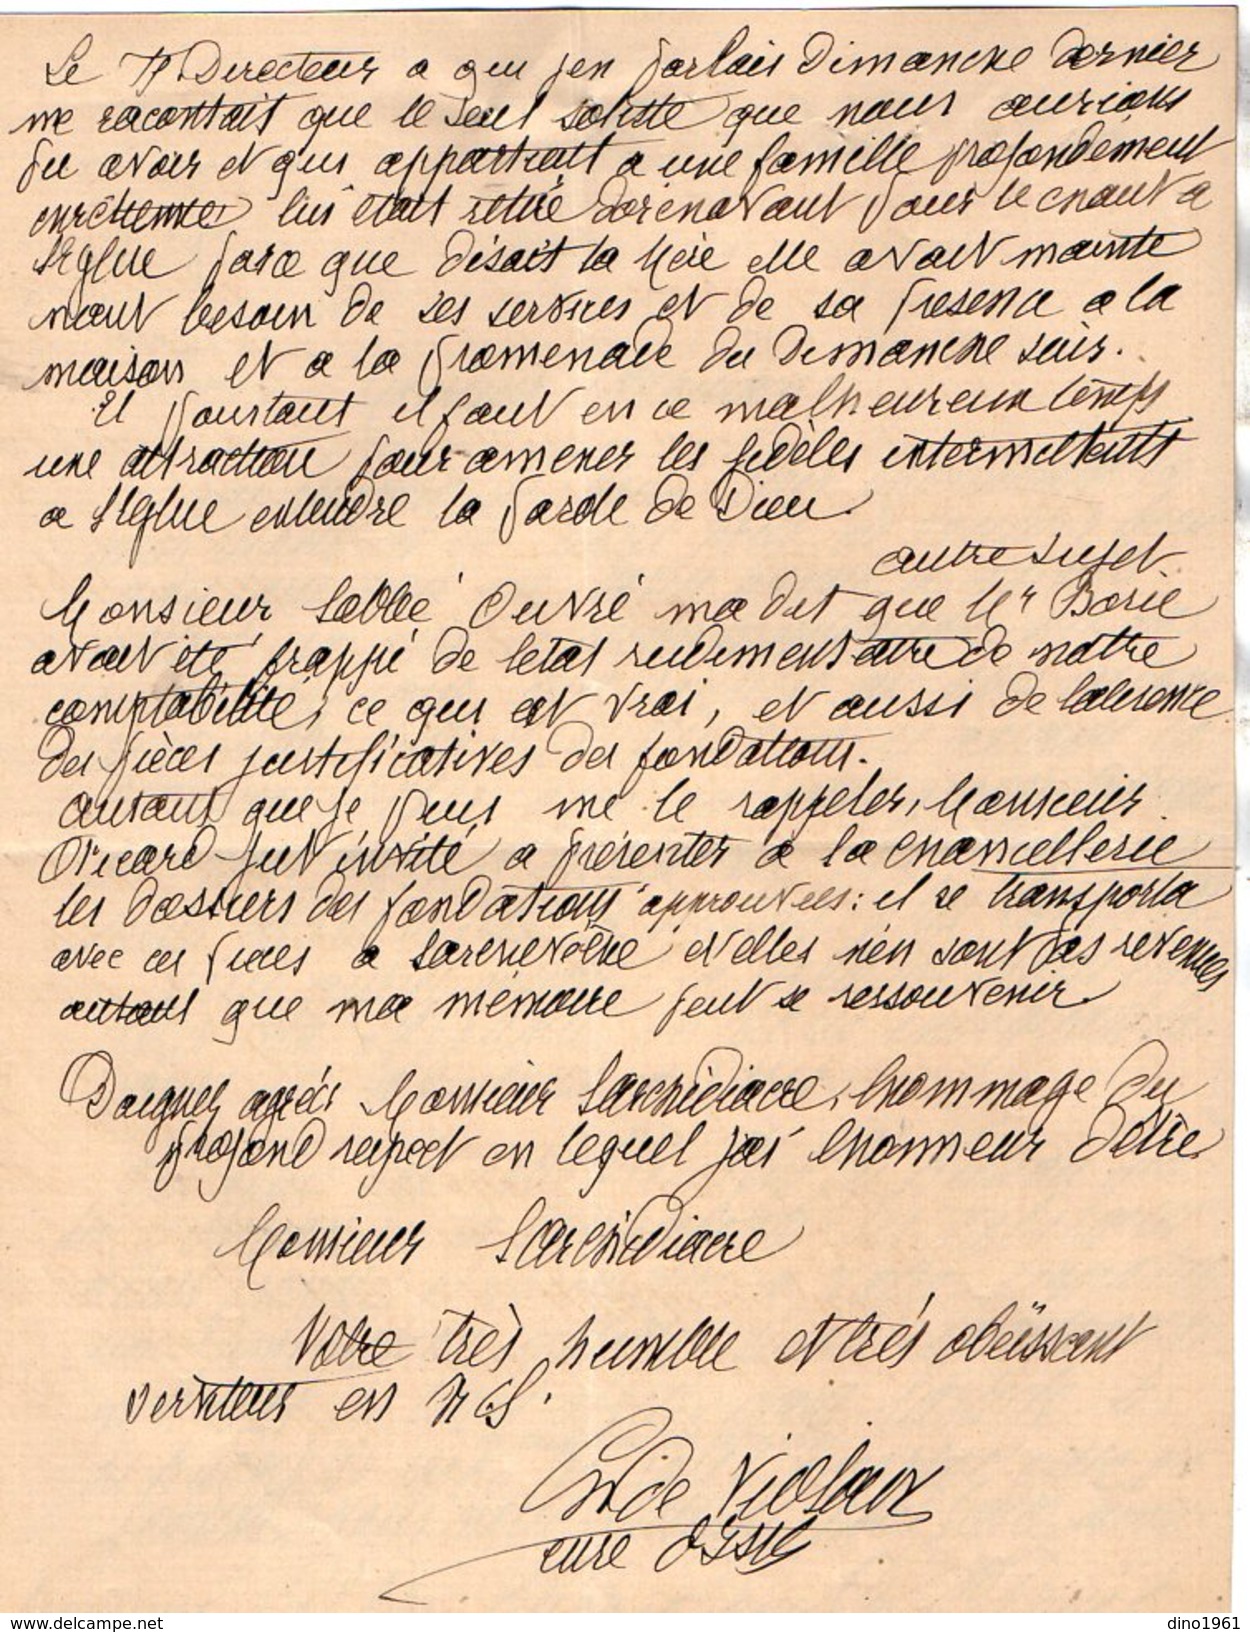 Le Directeur a qui jen parlais Dimanche dernier
me racontait que le seul soliste que nous aurions
pu avoir et qui appartient a une famille profondement
chretienne lui etait retiré dorenavant pour le chant a
leglise parce que disait la Mère elle avait mainte
nant besoin de ses services et de sa presence a la
maison et a la promenade du Dimanche soir.
Et pourtant il faut en ce malheureux temps
une attraction pour amener les fidèles intermittents
a leglise entendre la parole de Dieu.
autre sujet
Monsieur labbé Ouvré ma dit que Mr Borie
avait été frappé de letat rudimentaire de notre
comptabilité, ce qui est vrai, et aussi de labsence
des pièces justificatives des fondations.
autant que je puis me le rappeler, Monsieur
Picard fut invité a présenter a la chancellerie
les dossiers des fondations approuvées: il se transporta
avec ces pieces a larchevêché et elles n'en sont pas revenues
autant que ma mémoire peut se ressouvenir.
Daignez agréer Monsieur larchidiacre, lhommage du
profond respect en lequel jai lhonneur detre
Monsieur larchidiacre
Votre très humble et très obéissant
serviteur en N S.
de
curé dIssy
delcampe.net
dino1961